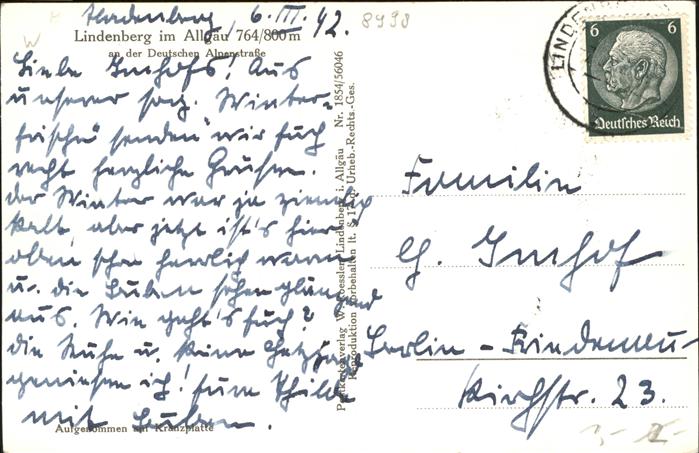 Lindenberg, 6.III.42.
8998
Lindenberg im Allgäu 764/800 m
an der Deutschen Alpenstraße
Liebe Imhofs! Aus
unserer sog. „Winter-
frische“ senden wir Euch
recht herzliche Grüße.
Der Winter war ja ziemlich
kalt, aber jetzt ist's hier
oben schon herrlich warm
u. die Buben sehen glänzend
aus. Wie geht's Euch?
die Ruhe u. keine
genießen ich! Eure Thilde
mit Buben.
Aufgenommen auf Kranzplatte
Postkartenverlag W. Goessler, Lindenberg i. Allgäu Nr. 1854/56046
Reproduktion vorbehalten lt. § Urheb.-Rechts-Ges.
LINDENB
6 6
Deutsches Reich
Familie
G. Imhof
Berlin - Friedenau
Kirchstr. 23.